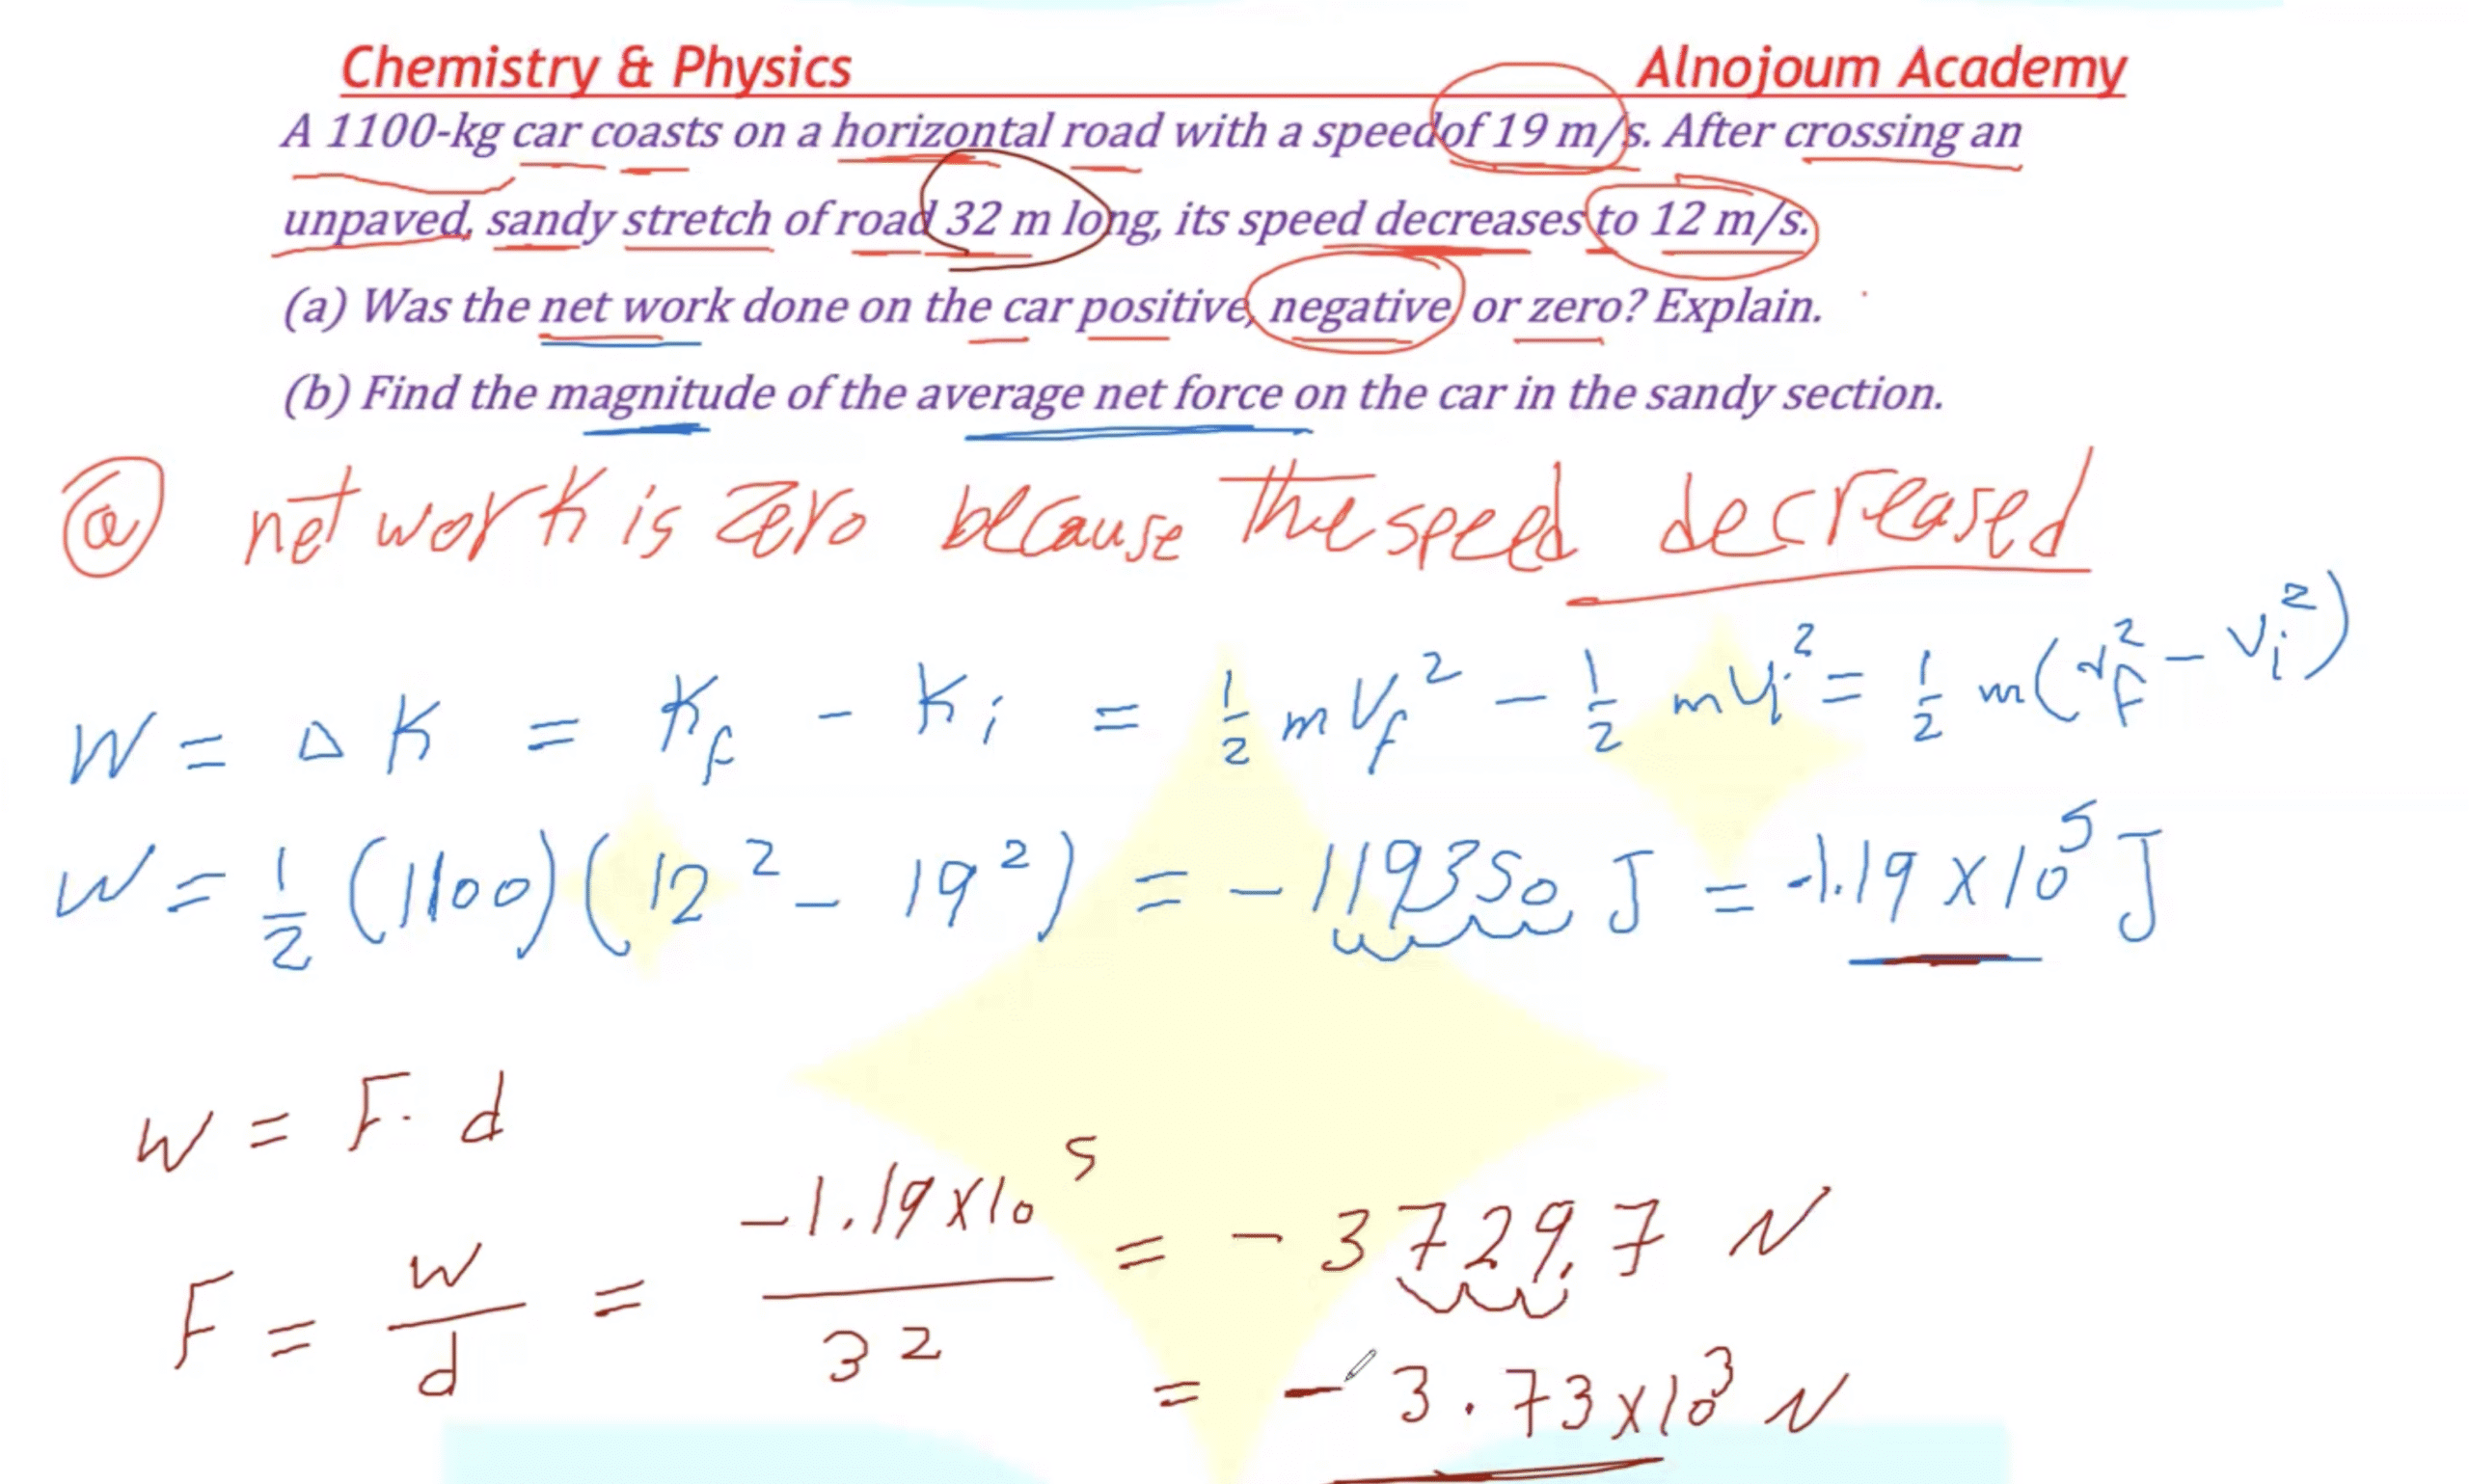 Chemistry & Physics Alnojoum Academy
A 1100-kg car coasts on a horizontal road with a speedof 19 m/s. After crossing an
unpaved, sandy stretch of road 32 m long, its speed decreases to 12 m/s.
(a) Was the net work done on the car positive, negative, or zero? Explain.
(b) Find the magnitude of the average net force on the car in the sandy section.
ⓐ net work is zero because the speed decreased
W = Δ K = K_f - K_i = 1/2 m V_f² - 1/2 m V_i² = 1/2 m(v_f² - v_i²)
W = 1/2 (1100)(12² - 19²) = - 119350 J = -1.19 x 10⁵ J
W = F. d
F = W/d = -1.19 x 10⁵ / 32 = - 3729.7 N
= - 3.73 x 10³ N